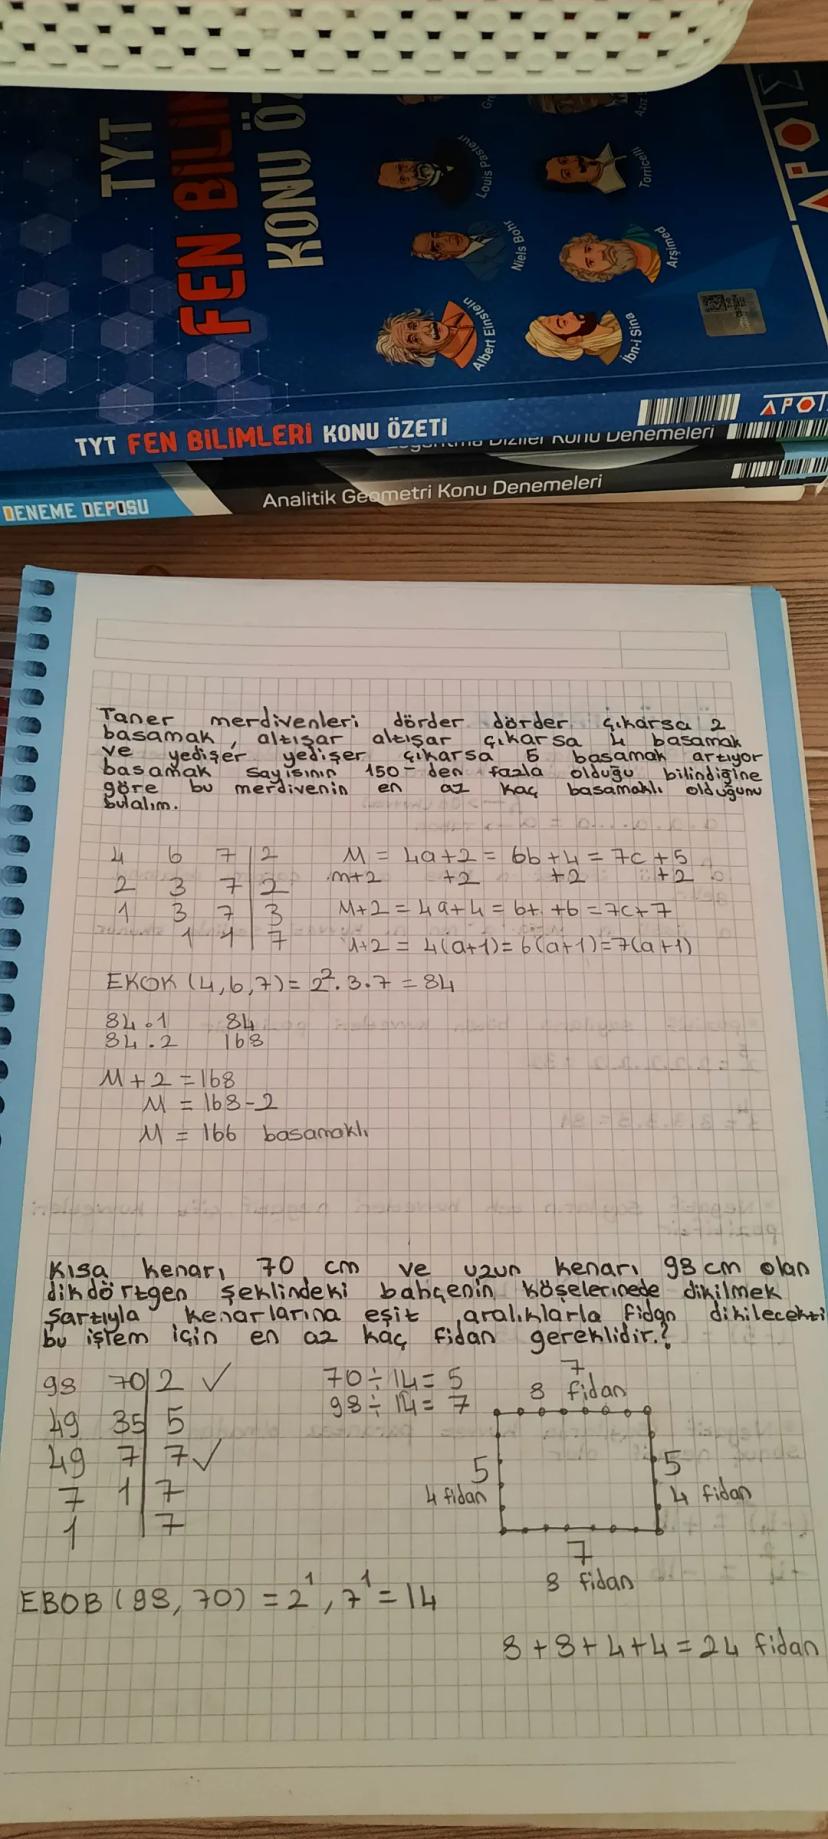 TYT
FEN BİLİM
KONU ÖZ
Louis Pasteur
Torricelli
Niels Bohr
Arşimed
Albert Einstein
İbn-i Sina
APOIΣ
TYT FEN BİLİMLERİ KONU ÖZETİ
APOI
Diziler Konu Denemeleri
DENEME DEPOSU
Analitik Geometri Konu Denemeleri
Taner merdivenleri dörder dörder çıkarsa 2
basamak, altışar altışar çıkarsa 4 basamak
ve yedişer yedişer çıkarsa 5 basamak artıyor
basamak sayısının 150-den fazla olduğu bilindiğine
göre bu merdivenin en az kaç basamaklı olduğunu
bulalım.
4 6 7 | 2 M = 4a+2 = 6b+4 = 7c+5
2 3 7 | 2 m+2 +2 +2 +2
1 3 7 | 3 M+2 = 4a+4 = 6+ +6 = 7c+7
1 1 | 7 M+2 = 4(a+1) = 6(a+1) = 7(a+1)
EKOK (4,6,7) = 2². 3 . 7 = 84
84 . 1 84
84 . 2 168
M + 2 = 168
M = 168-2
M = 166 basamaklı
Kısa kenarı 70 cm ve uzun kenarı 98 cm olan
dikdörtgen şeklindeki bahçenin köşelerinede dikilmek
şartıyla kenarlarına eşit aralıklarla fidan dikilecekti
bu işlem için en az kaç fidan gereklidir.?
98 70 | 2 ✓ 70 ÷ 14 = 5
49 35 | 5 98 ÷ 14 = 7
49 7 | 7 ✓
7 1 | 7
1 | 7
7
8 fidan
5
4 fidan
5
4 fidan
7
8 fidan
EBOB (98, 70) = 2¹, 7¹ = 14
8 + 8 + 4 + 4 = 24 fidan